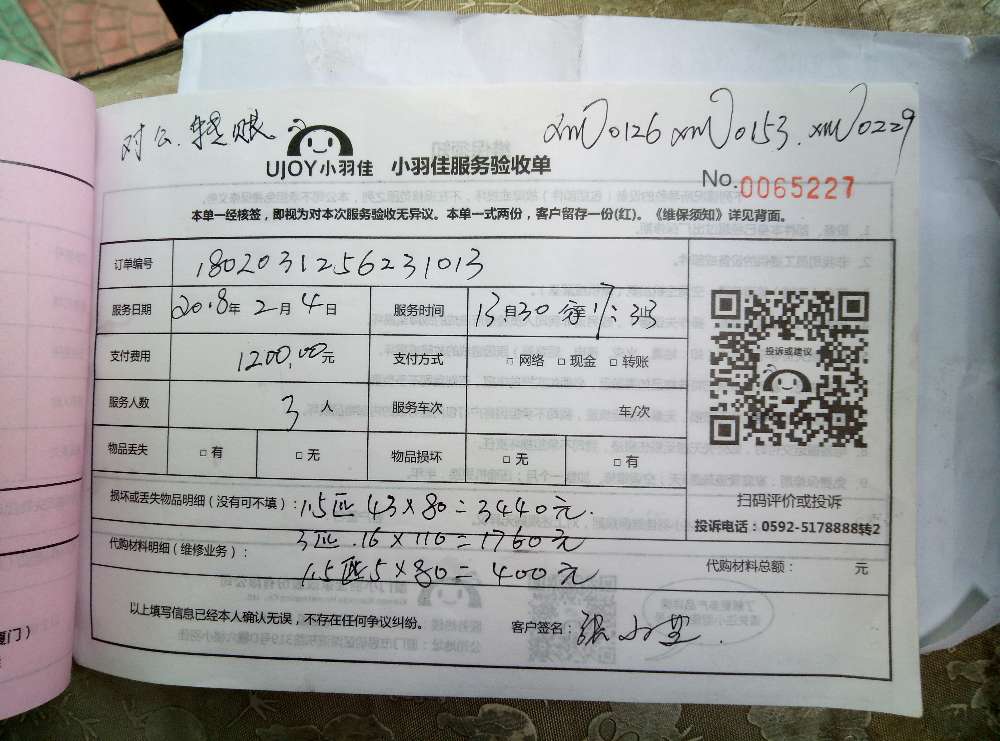 对公.转账
xmU0126 xmU0153. xmU0229
UJOY小羽佳 小羽佳服务验收单
No.0065227
本单一经核签，即视为对本次服务验收无异议。本单一式两份，客户留存一份(红)。《维保须知》详见背面。
订单编号 1802031256231013
服务日期 2018年 2月 4日 服务时间 13:30 至 17:35
支付费用 1200.00元 支付方式 □ 网络 □ 现金 □ 转账
投诉或建议
服务人数 3人 服务车次 车/次
物品丢失 □ 有 □ 无 物品损坏 □ 无 □ 有
扫码评价或投诉
损坏或丢失物品明细（没有可不填）： 1.5匹 43×80=3440元.
投诉电话：0592-5178888转2
代购材料明细（维修业务）： 3匹.16×110=1760元
代购材料总额： 元
1.5匹5×80=400元
以上填写信息已经本人确认无误，不存在任何争议纠纷。 客户签名：
厦门）